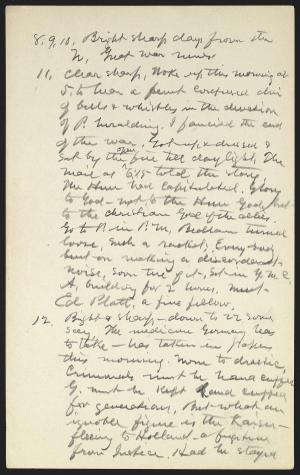 8, 9, 10, Bright sharp days from the
N, Great war news
11, Clear sharp, Woke up this morning at
5 to hear a faint confused din
of bells & whistles in the direction
of P. heralding, I fancied the end
of the war. Got up & dressed &
sat by the open fire till daylight, The
mail at 6.15 told the story,
The Hun had capitulated. Glory
to God - not to the Hun God, but
to the Christian God of the allies.
Go to P. in P.M. Bedlam turned
loose, Such a racket, Every body
bent on making a discordant
noise, soon tire of it, Sit in Y.M.C.
A. building for 2 hours, meet
Ed Platt, a fine fellow.
12, Bright & sharp - down to 22 some
say, The medicine Germany has
to take - has taken in
this morning. None to drastic,
Criminals must be hand cuffed
G. must be kept hand cuffed
for generations, But what an
ignoble figure is the Kaiser -
fleeing to Holland - a fugitive
from Justice, Had he stayed